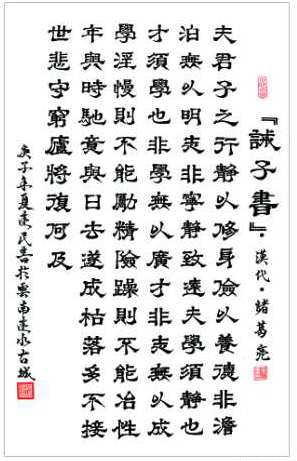 『誡子書』·漢代·諸葛亮
夫君子之行靜以修身儉以養德非澹
泊無以明志非寧靜致遠夫學須靜也
才須學也非學無以廣才非志無以成
學淫慢則不能勵精險躁則不能冶性
年與時馳意與日去遂成枯落多不接
世悲守窮廬將復何及
庚子年夏建民書於雲南建水古城